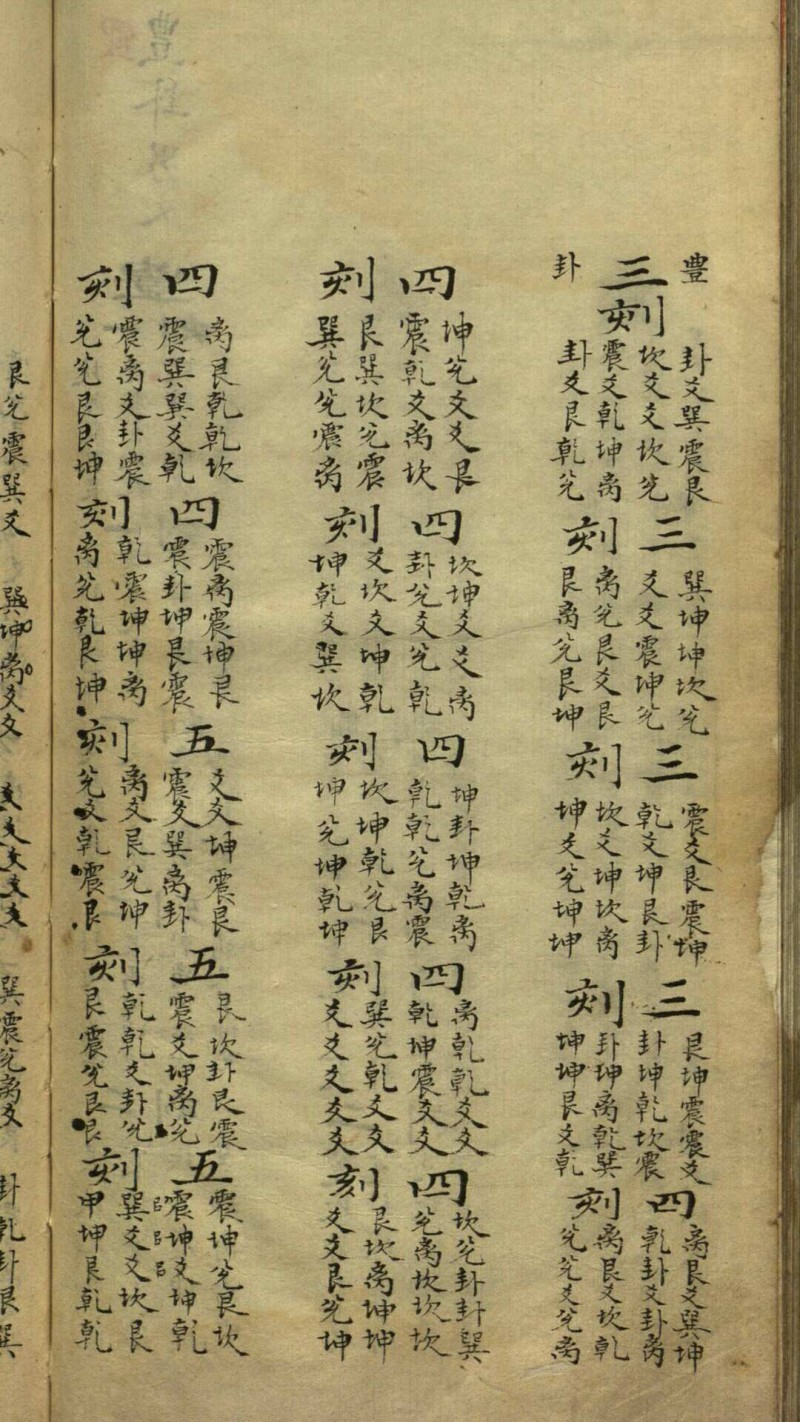 豊卦
三刻
卦爻巽震艮
坎爻爻坎兊
震爻乾坤离
卦爻艮乾兊
三刻
巽坤坤坎兊
爻爻震坤兊
离兊艮爻艮
艮离兊艮坤
三刻
震爻艮震坤
乾爻坤艮卦
坎爻坤坎离
坤爻兊坤坤
三刻
艮坤震震爻
卦坤乾坎震
卦坤离乾巽
坤坤艮爻乾
四刻
离艮爻巽坤
乾卦爻卦离
离艮爻坎乾
兊兊爻兊离
四刻
坤兊爻爻艮
震乾爻离坎
艮巽坎兊震
巽兊兊震离
四刻
坎坤爻爻离
卦兊爻兊乾
爻坎爻坤乾
坤乾爻巽坎
四刻
坤卦坤乾离
乾乾兊离震
坎坤乾兊艮
坤兊坤乾坤
四刻
离乾乾爻爻
乾坤震爻爻
巽兊乾爻爻
爻爻爻爻爻
四刻
坎兊卦卦巽
兊离坎坎坎
艮坎离坤坤
爻爻艮兊坤
四刻
离艮乾乾坎
震巽巽爻乾
震离爻卦震
兊兊艮艮坤
四刻
震离震坤艮
震卦坤艮震
乾震坤坤离
离兊乾艮坤
五刻
爻爻坤震艮
震爻巽离卦
离爻艮兊坤
兊爻乾震艮
五刻
艮坎卦艮震
震爻坤离兊
乾乾爻卦兊
艮震兊艮艮
五刻
震坤兊艮坎
震坤爻坤乾
巽爻爻坎艮
甲坤艮乾乾
艮兊震巽爻
巽坤离爻爻
爻爻爻爻爻
巽震兊离爻
卦乾卦艮巽